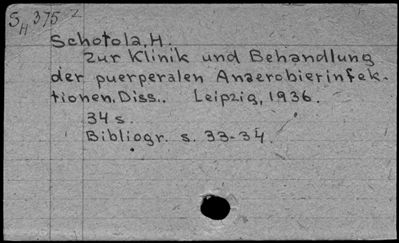 SH 375 2
Schotola, H.
Zur Klinik und Behandlung
der puerperalen Anaerobierinfek-
tionen. Diss.. Leipzig, 1936.
34 s.
Bibliogr. s. 33-34.